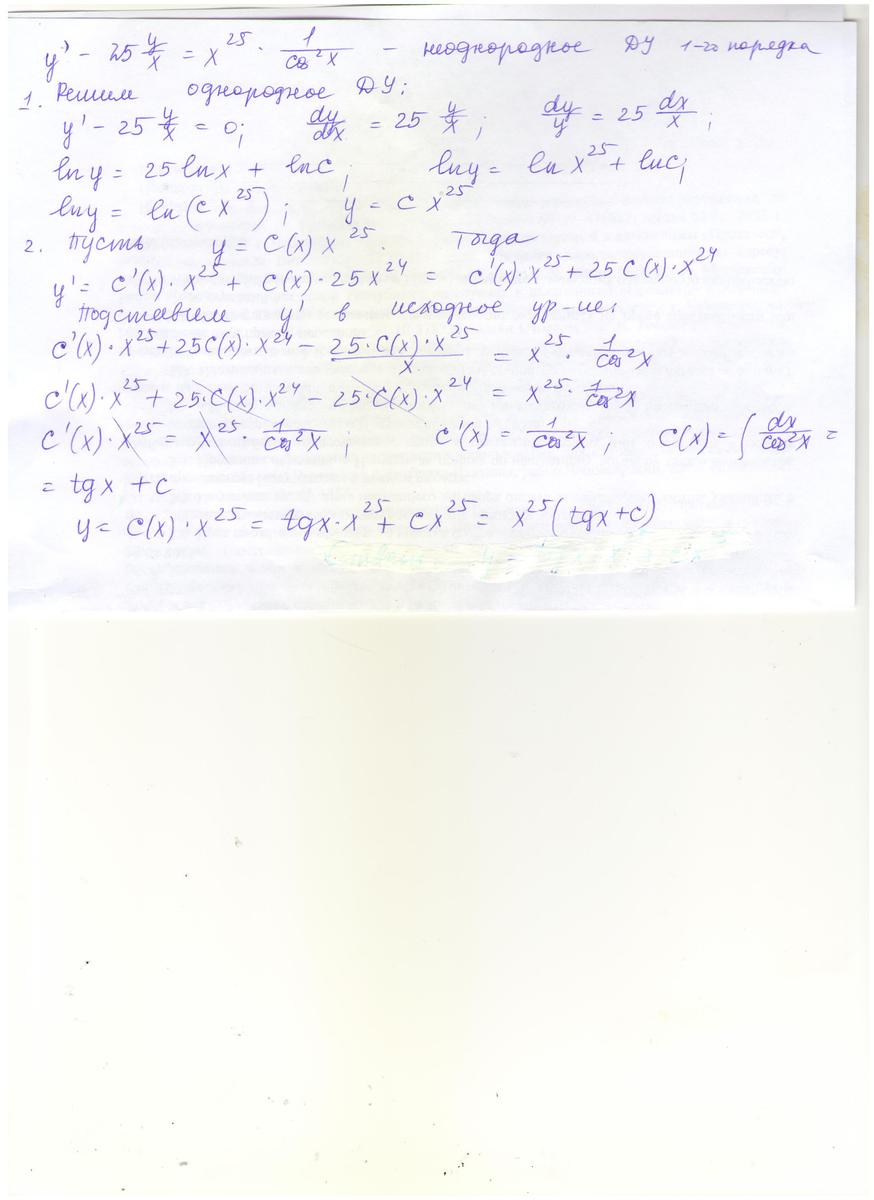 y' - 25 y/x = x^25 · 1/cos²x - неоднородное ДУ 1-го порядка
1. Решим однородное ДУ:
y' - 25 y/x = 0; dy/dx = 25 y/x; dy/y = 25 dx/x;
ln y = 25 ln x + ln c; ln y = ln x^25 + ln c;
ln y = ln(c x^25); y = c x^25
2. Пусть y = C(x) x^25. Тогда
y' = C'(x) · x^25 + C(x) · 25x^24 = C'(x) · x^25 + 25 C(x) · x^24
Подставим y' в исходное ур-ие:
C'(x) · x^25 + 25C(x) · x^24 - 25·C(x)·x^25/x = x^25 · 1/cos²x
C'(x) · x^25 + 25·C(x)·x^24 - 25·C(x)·x^24 = x^25 · 1/cos²x
C'(x) · x^25 = x^25 · 1/cos²x; C'(x) = 1/cos²x; C(x) = ∫ dx/cos²x =
= tgx + c
y = C(x) · x^25 = tgx · x^25 + cx^25 = x^25 (tgx + c)